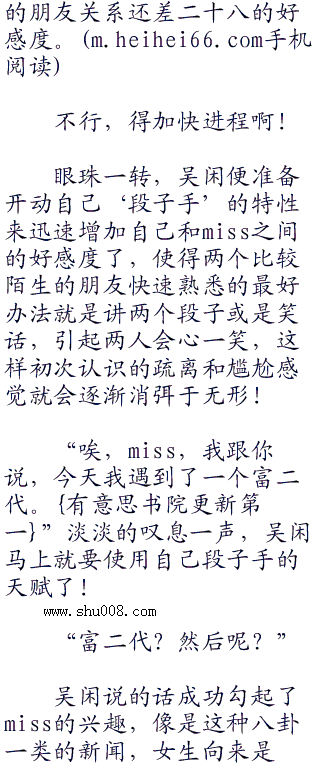 的朋友关系还差二十八的好
感度。(m.heihei66.com手机
阅读)
不行，得加快进程啊！
眼珠一转，吴闲便准备
开动自己‘段子手’的特性
来迅速增加自己和miss之间
的好感度了，使得两个比较
陌生的朋友快速熟悉的最好
办法就是讲两个段子或是笑
话，引起两人会心一笑，这
样初次认识的疏离和尴尬感
觉就会逐渐消弭于无形！
“唉，miss，我跟你
说，今天我遇到了一个富二
代。{有意思书院更新第
一}”淡淡的叹息一声，吴闲
马上就要使用自己段子手的
天赋了！
www.shu008.com
“富二代？然后呢？”
吴闲说的话成功勾起了
miss的兴趣，像是这种八卦
一类的新闻，女生向来是